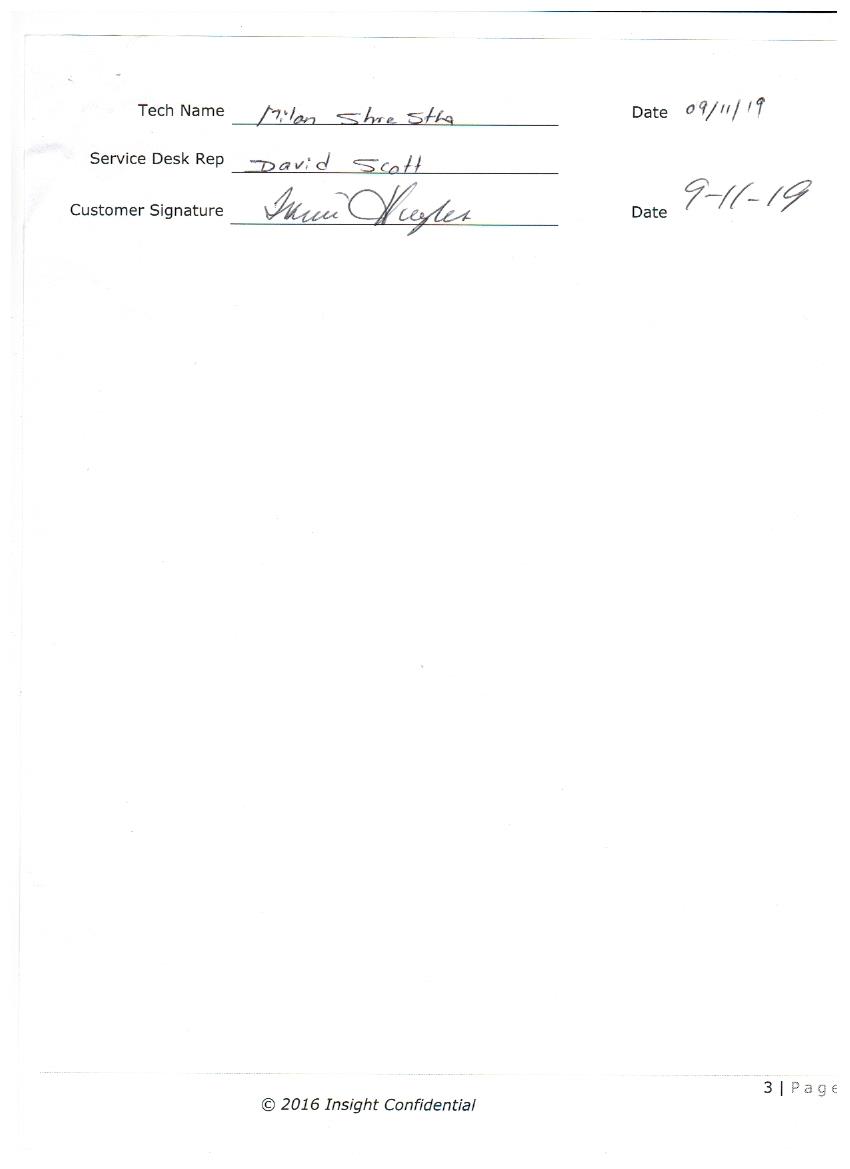 Tech Name Milan Shrestha Date 09/11/19
Service Desk Rep David Scott
Customer Signature Date 9-11-19
3 | Page
© 2016 Insight Confidential